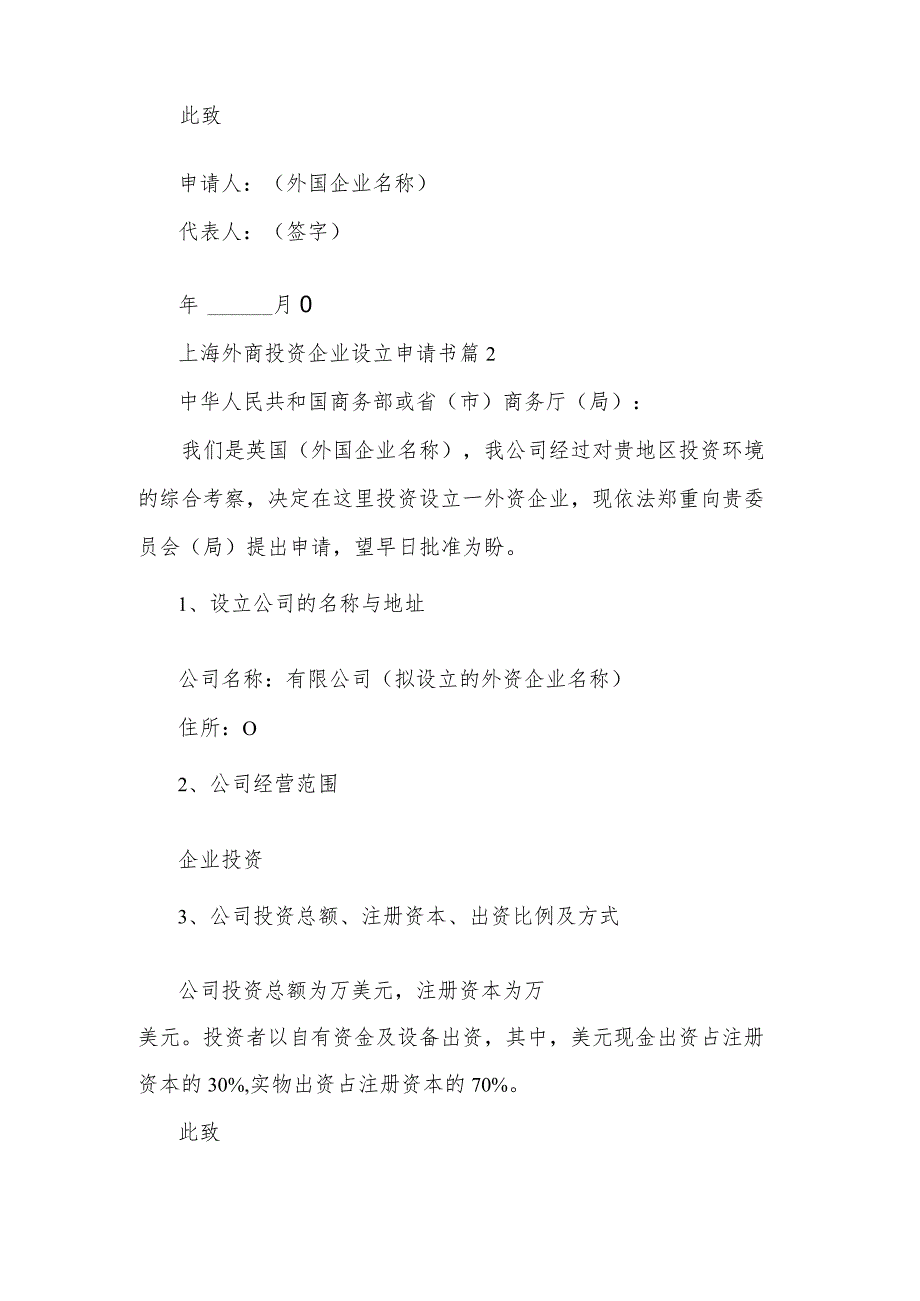 此致
申请人：（外国企业名称）
代表人：（签字）
年 ______月0
上海外商投资企业设立申请书篇2
中华人民共和国商务部或省（市）商务厅（局）：
我们是英国（外国企业名称），我公司经过对贵地区投资环境
的综合考察，决定在这里投资设立一外资企业，现依法郑重向贵委
员会（局）提出申请，望早日批准为盼。
1、设立公司的名称与地址
公司名称：有限公司（拟设立的外资企业名称）
住所：O
2、公司经营范围
企业投资
3、公司投资总额、注册资本、出资比例及方式
公司投资总额为万美元，注册资本为万
美元。投资者以自有资金及设备出资，其中，美元现金出资占注册
资本的30%,实物出资占注册资本的70%。
此致